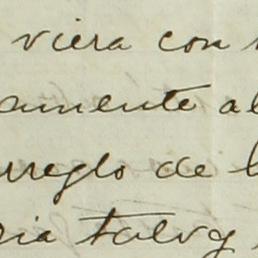 viera con
amente al
rreglo de l
ria talvez